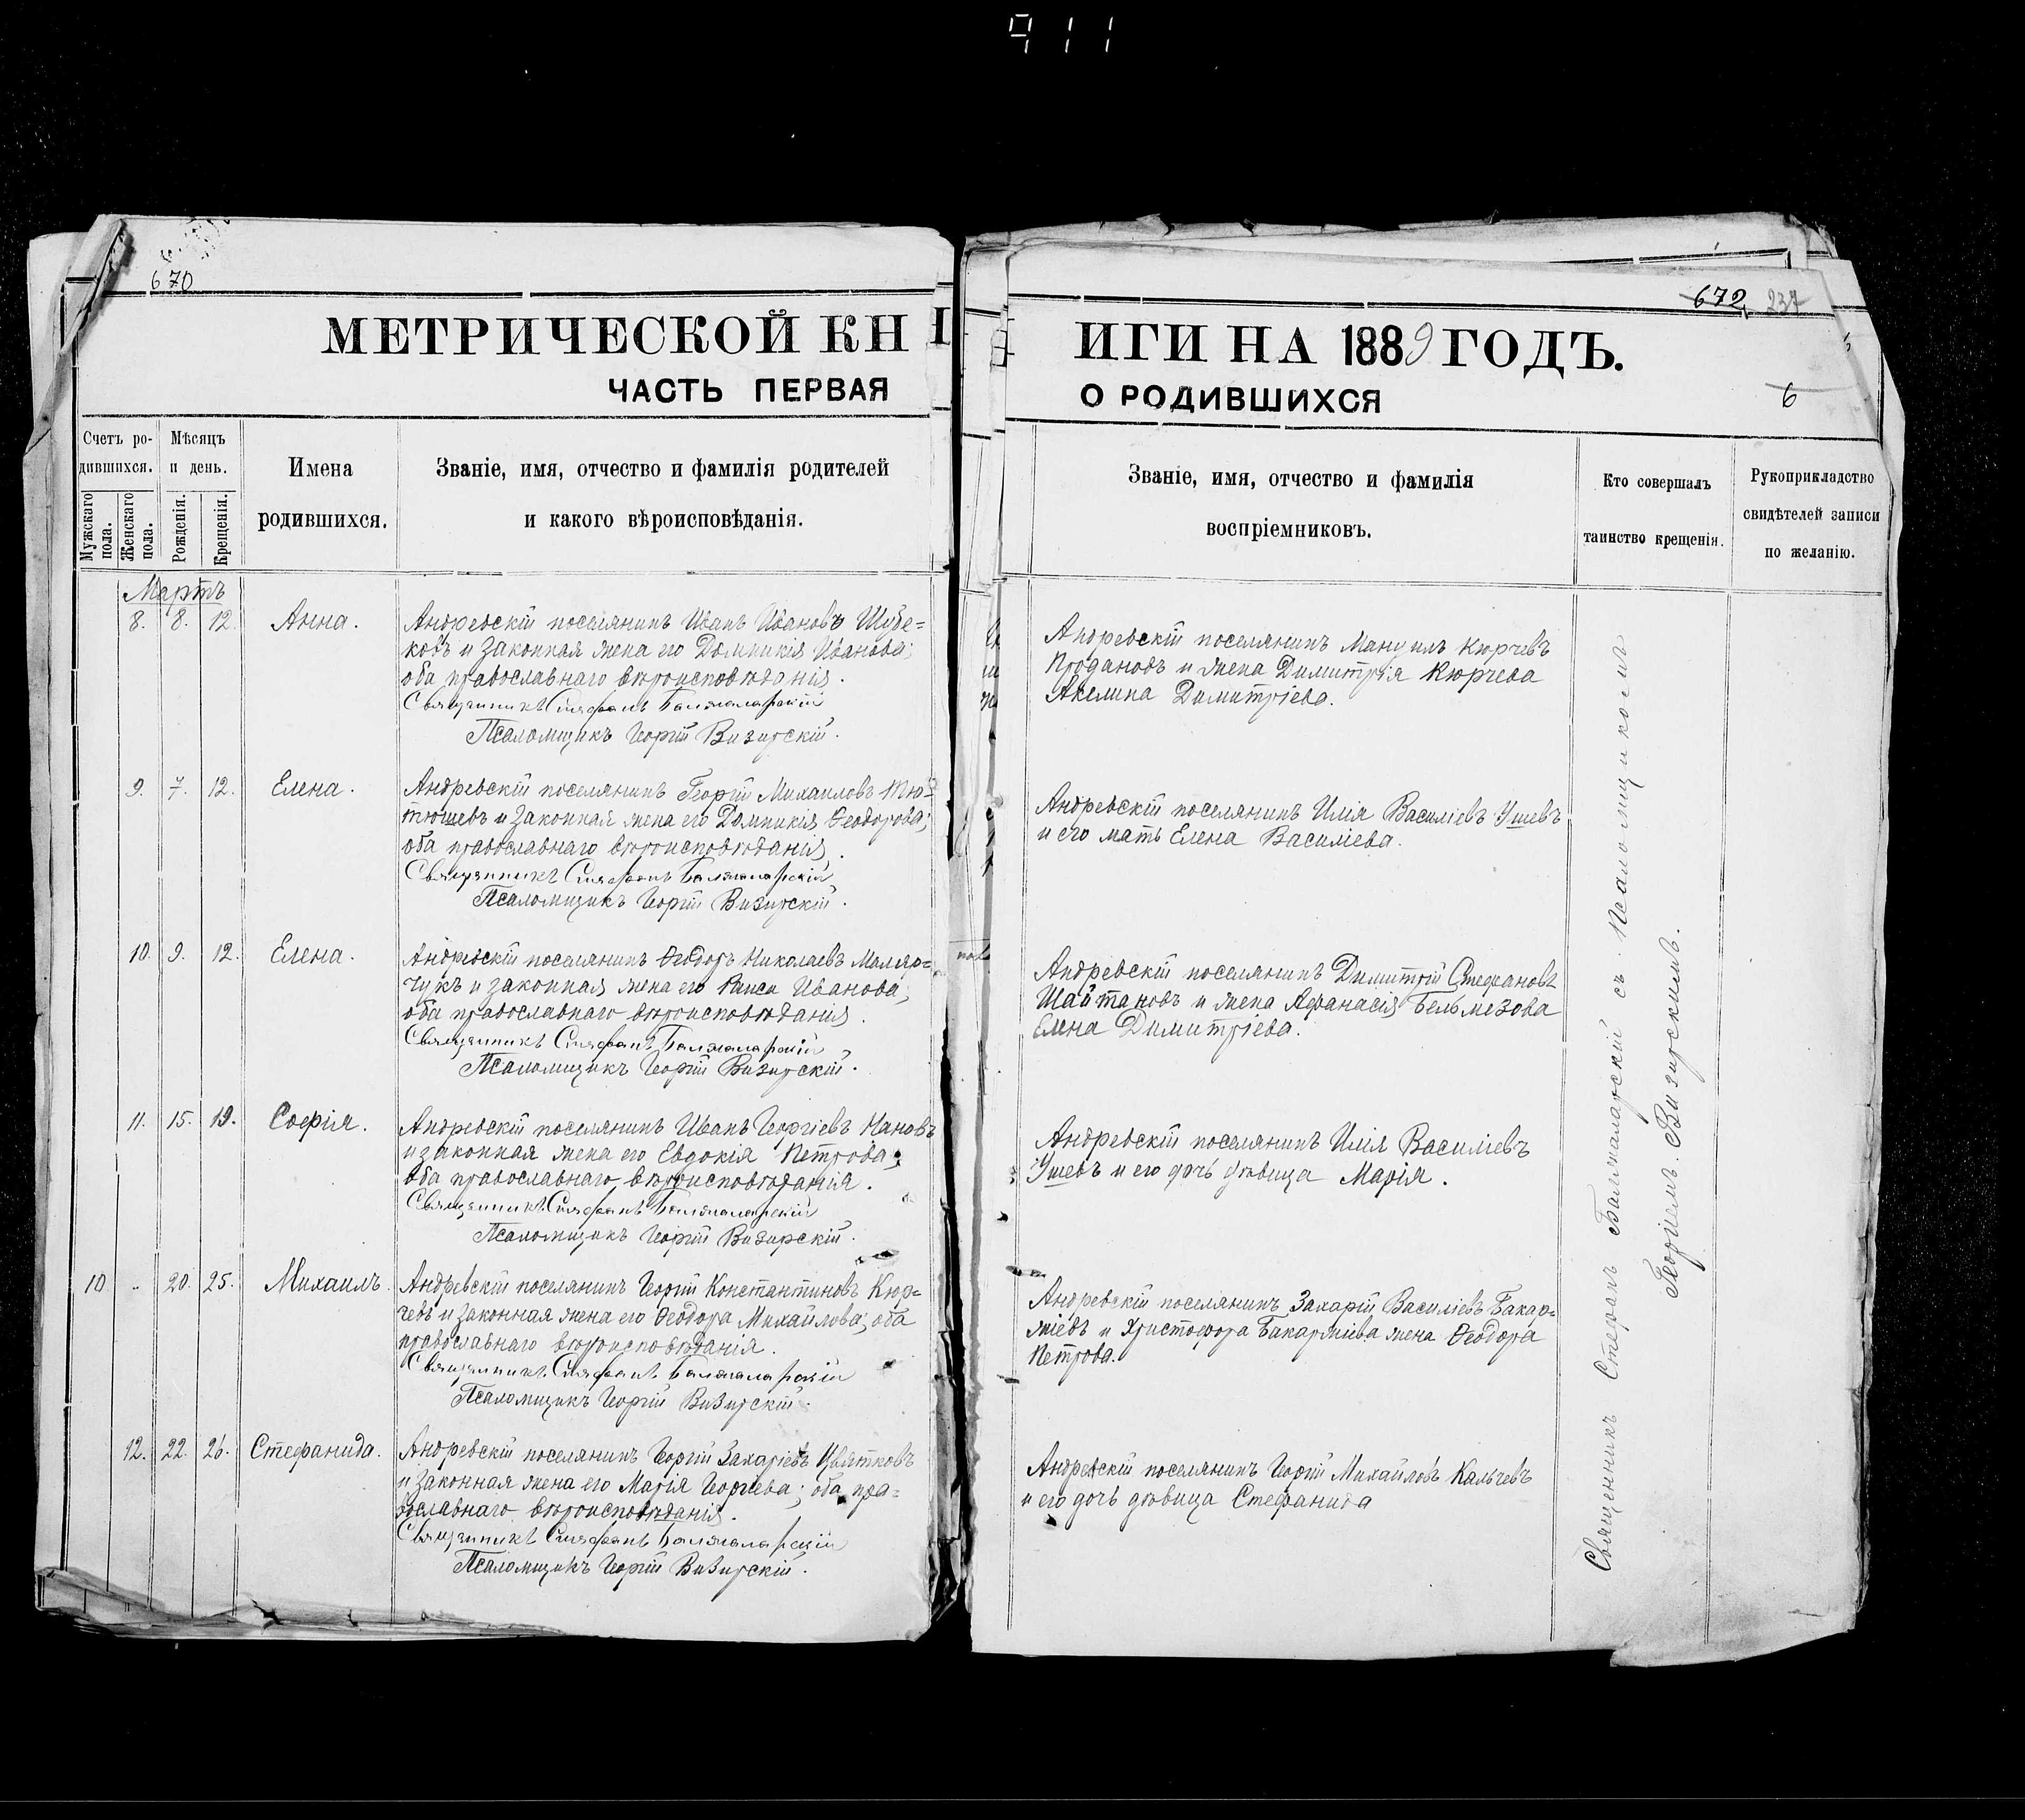 911
670
МЕТРИЧЕСКОЙ КН
ЧАСТЬ ПЕРВАЯ
Счетъ ро-
дившихся.
Мужскаго пола.
Женскаго пола.
Мѣсяцъ
и день.
Рожденія.
Крещенія.
Имена
родившихся.
Званіе, имя, отчество и фамилія родителей
и какого вѣроисповѣданія.
Мартъ
8. 8. 12. Анна.
Андревскій поселянинъ Иванъ Ивановъ
и законная жена его Домникія Иванова;
оба православнаго вѣроисповѣданія.
Священникъ Стефанъ Балжаларскій
Псаломщикъ Георгій Визирскій.
9. 7. 12. Елена.
Андревскій поселянинъ Георгій Михаиловъ Тю-
тюшевъ и законная жена его Домникія Ѳеодорова;
оба православнаго вѣроисповѣданія.
Священникъ Стефанъ Балжаларскій
Псаломщикъ Георгій Визирскій.
10. 9. 12. Елена.
Андревскій поселянинъ Ѳеодоръ Николаевъ Маляр-
чукъ и законная жена его Раиса Иванова;
оба православнаго вѣроисповѣданія.
Священникъ Стефанъ Балжаларскій
Псаломщикъ Георгій Визирскій.
11. 15. 19. Софія.
Андревскій поселянинъ Иванъ Георгіевъ Нановъ
и законная жена его Евдокія Петрова;
оба православнаго вѣроисповѣданія.
Священникъ Стефанъ Балжаларскій
Псаломщикъ Георгій Визирскій.
10 - 20. 25. Михаилъ.
Андревскій поселянинъ Георгій Константиновъ Кюр-
чевъ и законная жена его Ѳеодора Михайлова; оба
православнаго вѣроисповѣданія.
Священникъ Стефанъ Балжаларскій
Псаломщикъ Георгій Визирскій.
12. 22. 26. Стефанида.
Андревскій поселянинъ Георгій Захаріевъ Цвятковъ
и законная жена его Марія Георгіева; оба пра-
вославнаго вѣроисповѣданія.
Священникъ Стефанъ Балжаларскій
Псаломщикъ Георгій Визирскій.
672 237
ИГИ НА 1889 ГОДЪ.
О РОДИВШИХСЯ
6
Званіе, имя, отчество и фамилія
воспріемниковъ.
Кто совершалъ
таинство крещенія.
Рукоприкладство
свидѣтелей записи
по желанію.
Андревскій поселянинъ Мануилъ Кюрчевъ
Продановъ и жена Димитрія Кюрчева
Акелина Димитріева.
Андревскій поселянинъ Илія Василіевъ Ушевъ
и его мать Елена Василіева.
Андревскій поселянинъ Димитрій Стефановъ
Шайтановъ и жена Афанасія Бельмезова
Елена Димитріева.
Андревскій поселянинъ Илія Василіевъ
Ушевъ и его дочь дѣвица Марія.
Андревскій поселянинъ Захарій Василіевъ Бакар-
жіевъ и Христофора Бакаржіева жена Ѳеодора
Петрова.
Андревскій поселянинъ Георгій Михайловъ Кальчевъ
и его дочь дѣвица Стефанида
Священникъ Стефанъ Балжаларскій съ псаломщикомъ
Георгіемъ Визирскимъ.